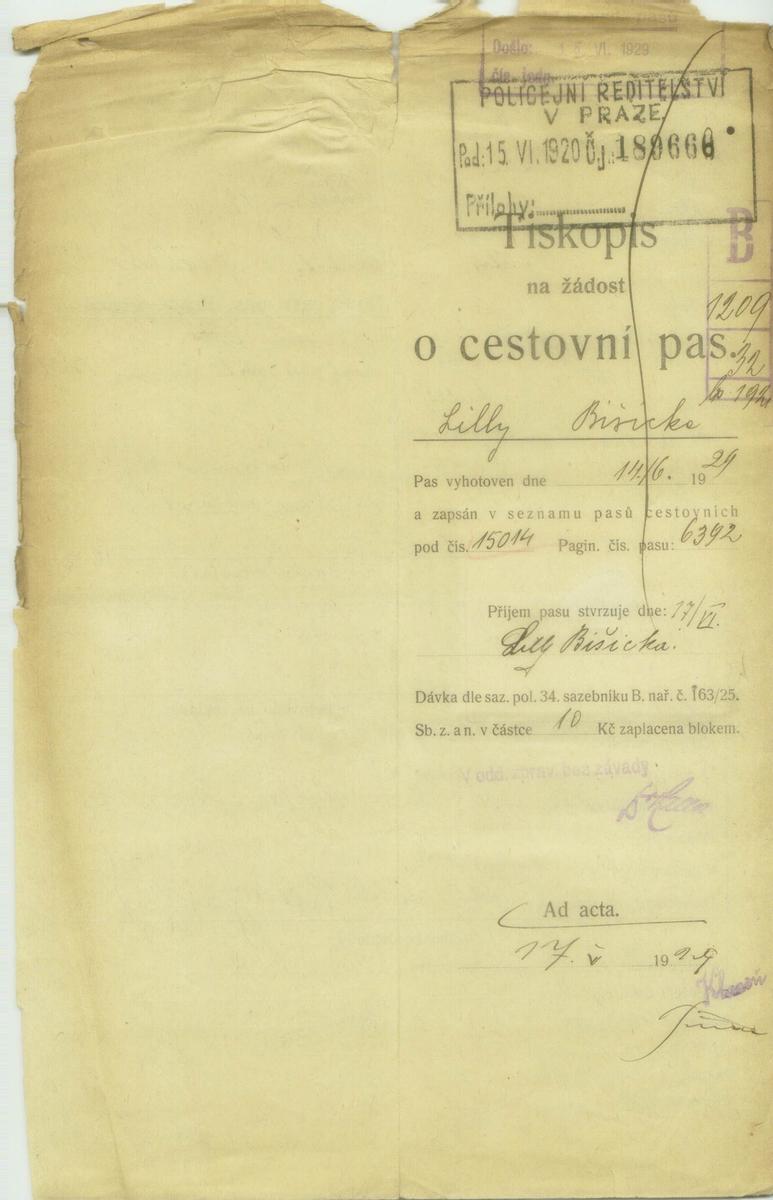 Došlo: 15 VI. 1929
čís. jedn.
POLICEJNÍ ŘEDITELSTVÍ
V PRAZE
Pod: 15. VI. 1920 Č.j.: 189666
Přílohy:
Tiskopis
B
na žádost
1209
o cestovní pas.
32
Lilly Bišická
Pas vyhotoven dne 14/6. 1929
a zapsán v seznamu pasů cestovních
pod čís. 15014 Pagin. čís. pasu: 6392
Příjem pasu stvrzuje dne: 17/VI.
Lilly Bišická.
Dávka dle saz. pol. 34. sazebníku B. nař. č. 163/25.
Sb. z. a n. v částce 10 Kč zaplacena blokem.
V odd. zprav. bez závady
Ad acta.
17. V 1929